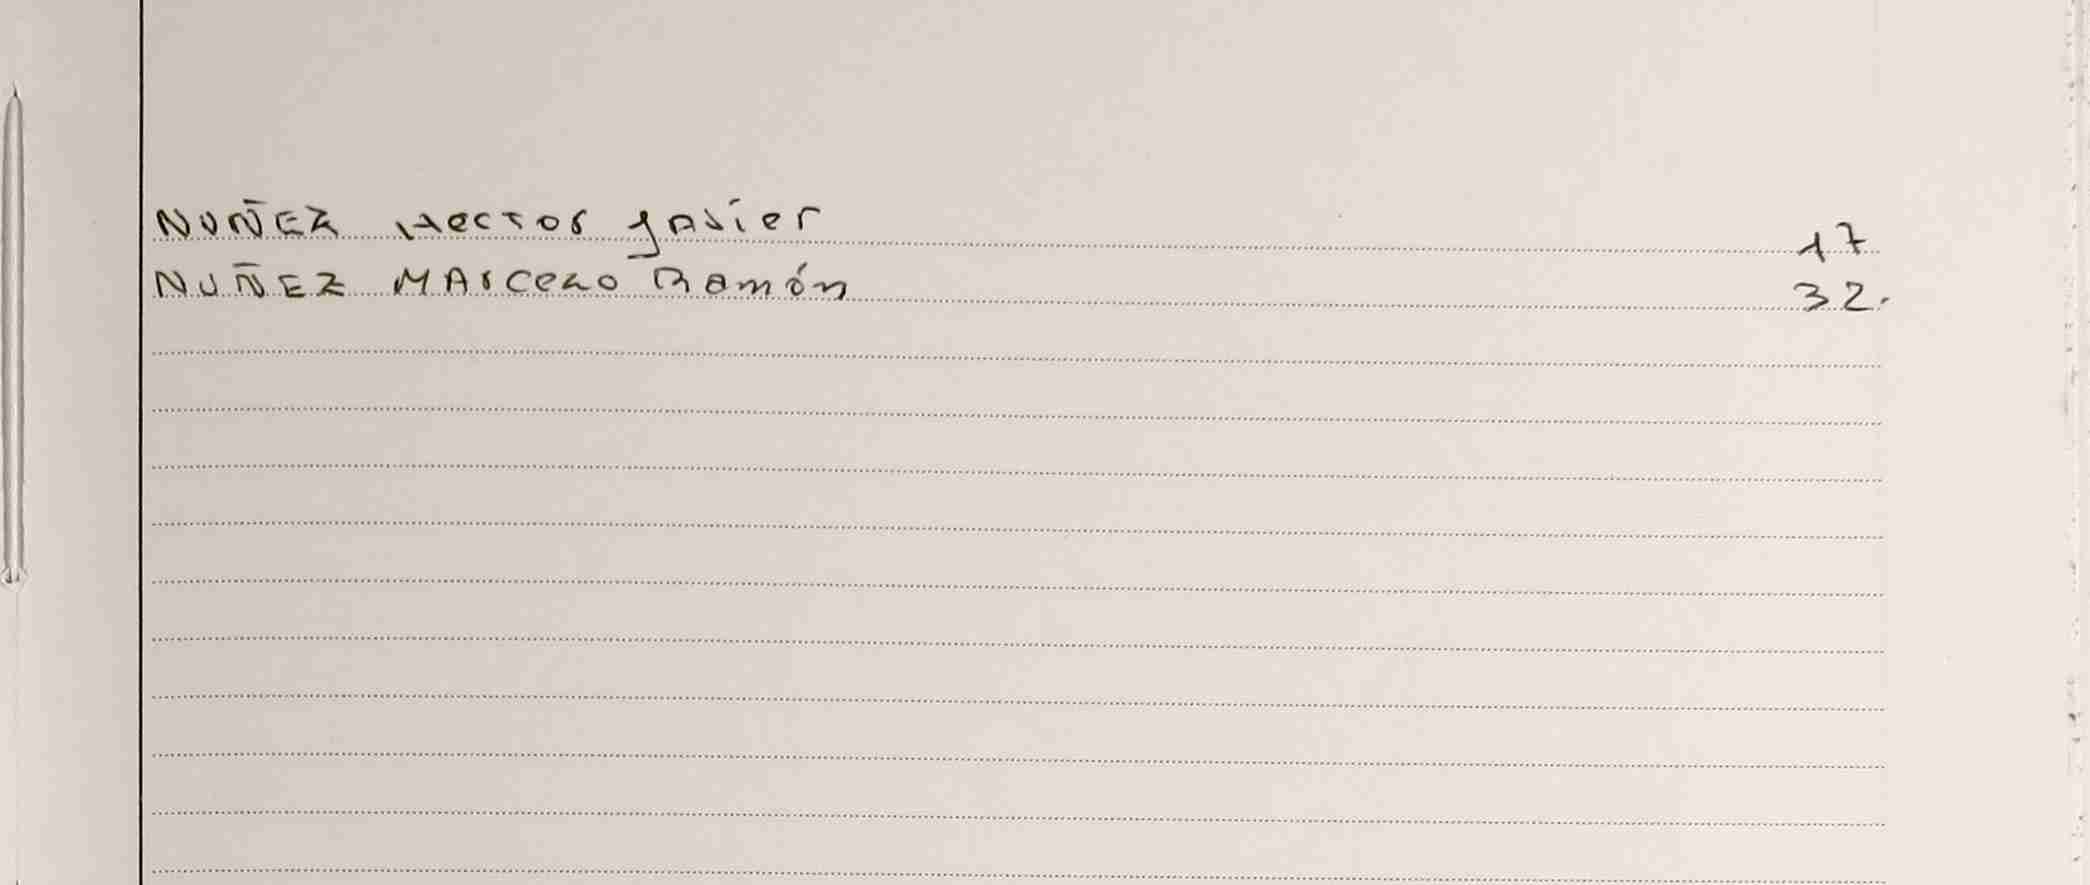 NUÑEZ Hector Javier 17
NUÑEZ MArceLO Ramón 32.